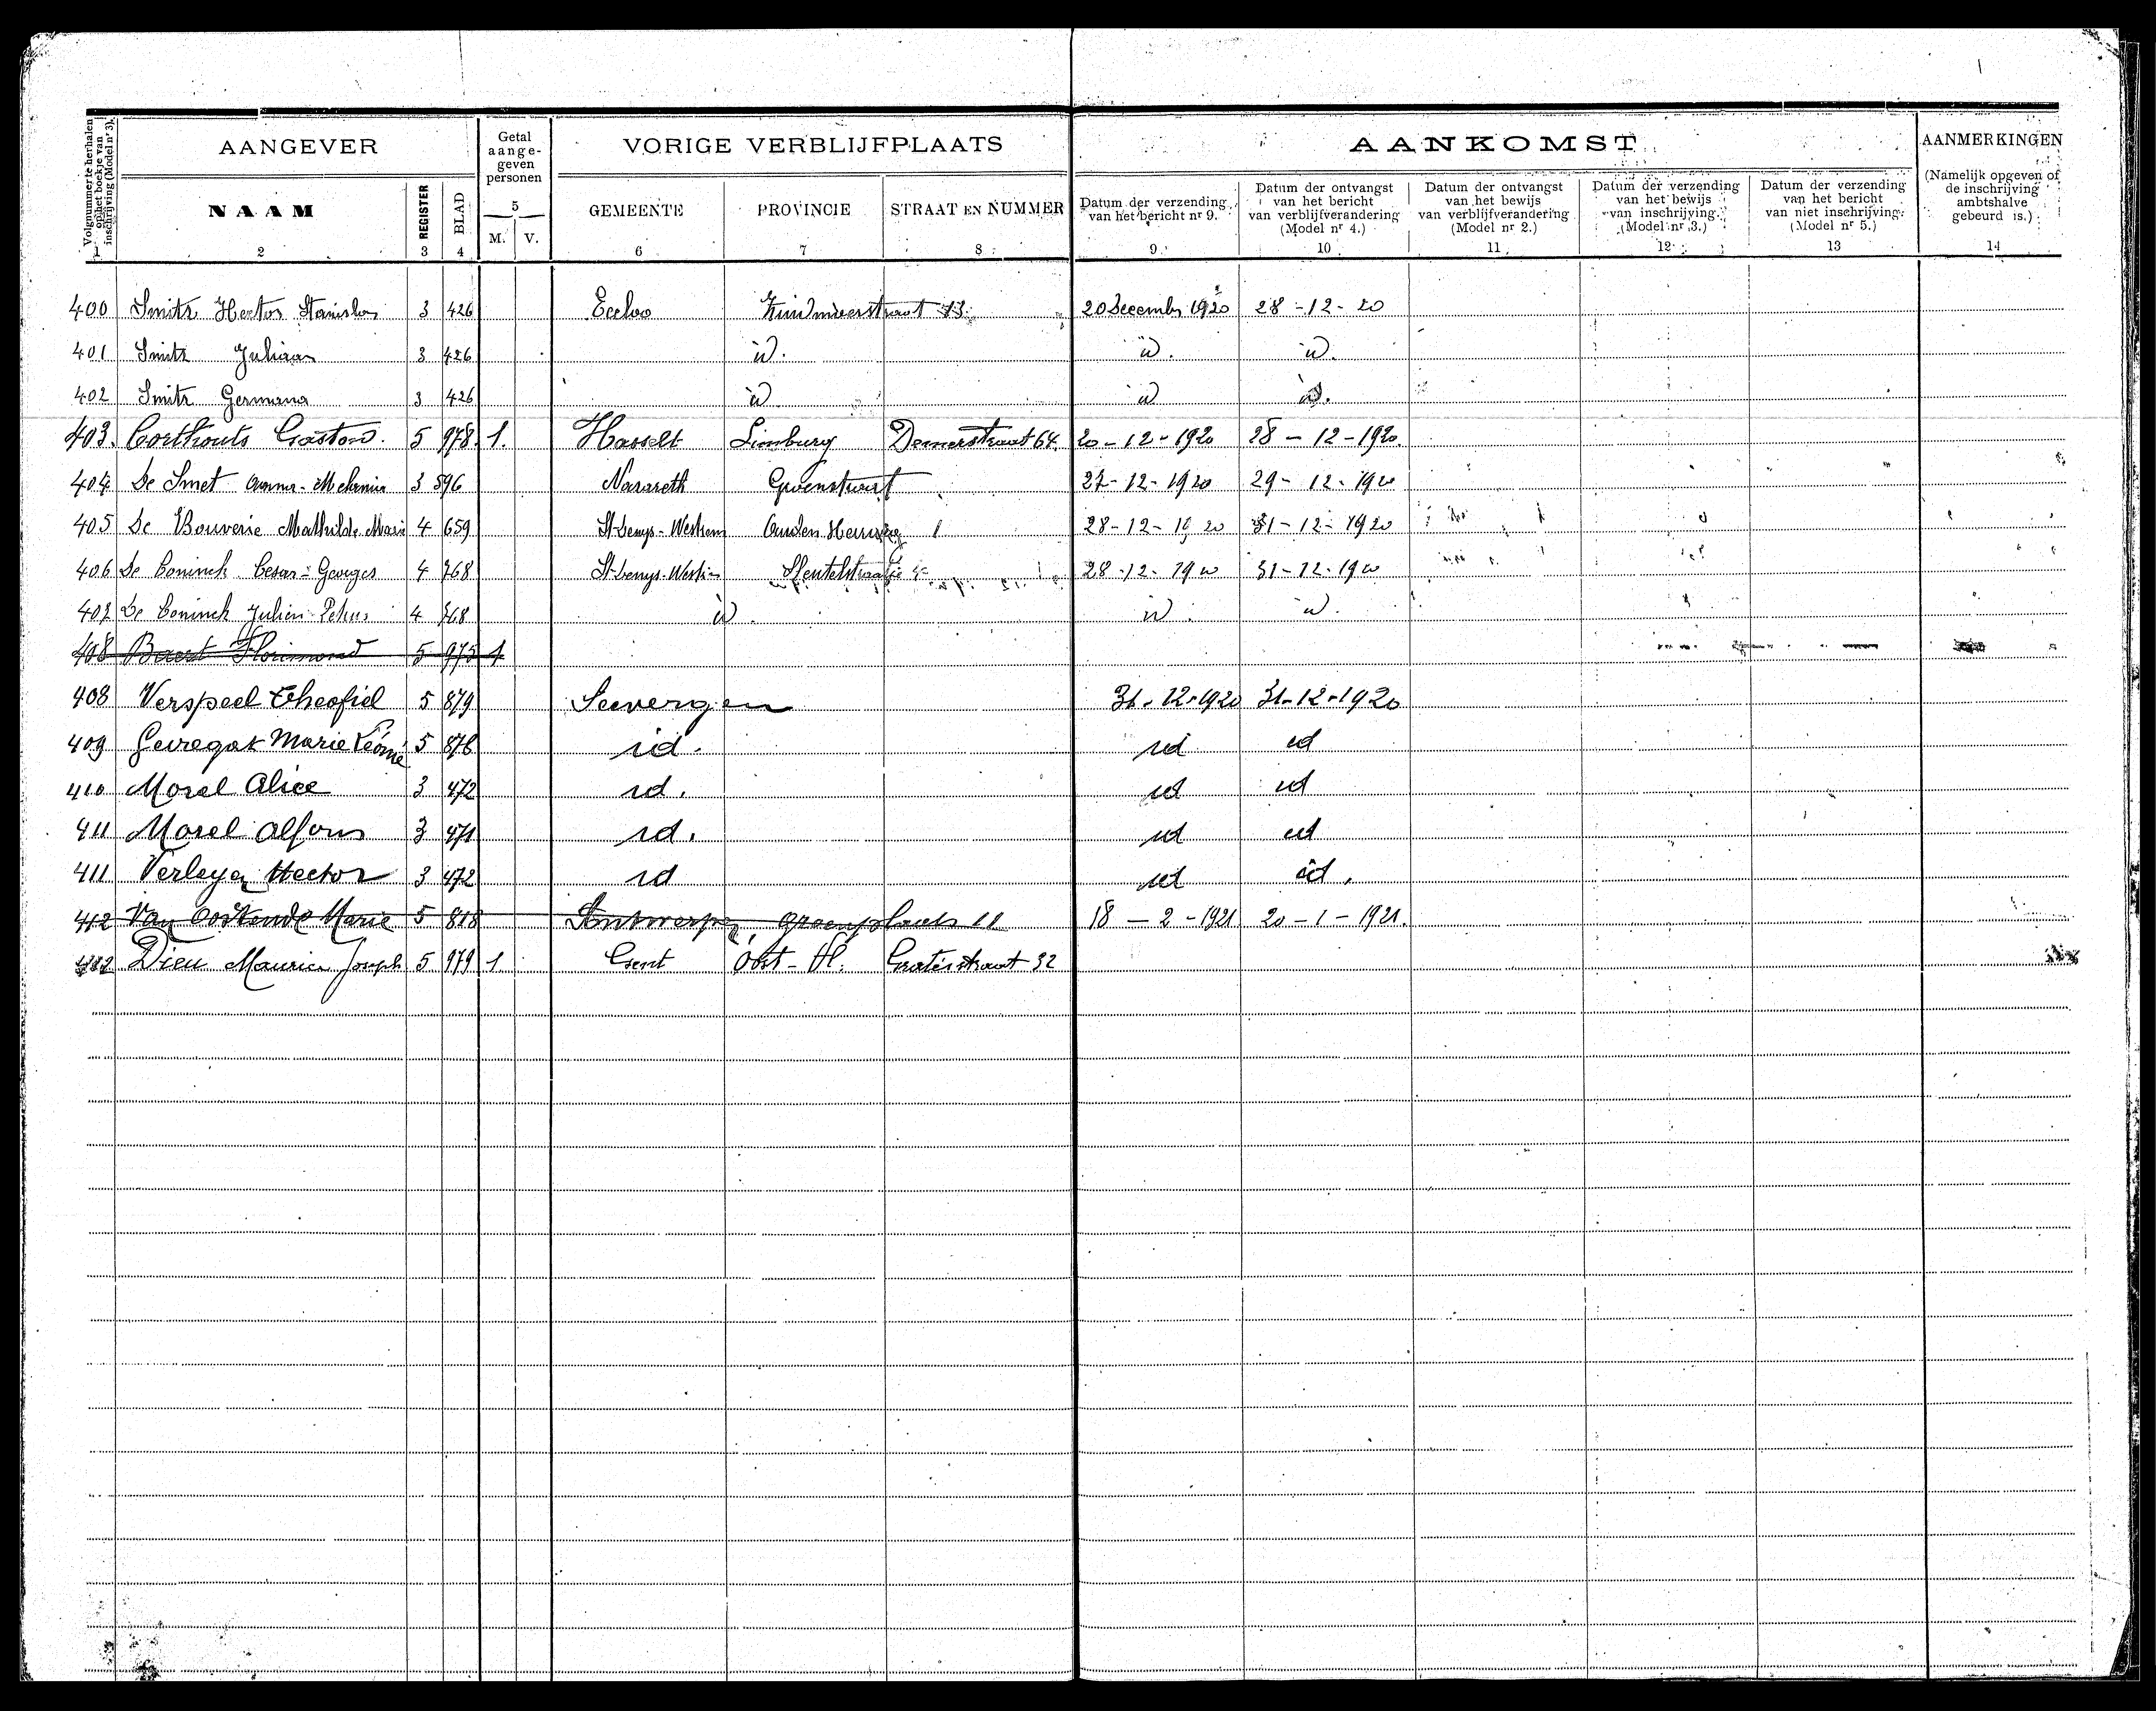 Volgnummer te herhalen op het boekje van inschrijving (Model nr 3).
AANGEVER
Getal aange-geven personen
VORIGE VERBLIJFPLAATS
AANKOMST
AANMERKINGEN
(Namelijk opgeven of de inschrijving ambtshalve gebeurd is.)
NAAM REGISTER BLAD 5 M. V. GEMEENTE PROVINCIE STRAAT EN NUMMER
Datum der verzending van het bericht nr 9.
Datum der ontvangst van het bericht van verblijfverandering (Model nr 4.)
Datum der ontvangst van het bewijs van verblijfverandering (Model nr 2.)
Datum der verzending van het bewijs van inschrijving. (Model nr 3.)
Datum der verzending van het bericht van niet inschrijving. (Model nr 5.)
1 2 3 4 6 7 8 9 10 11 12 13 14
400 Smitz Hector Stanislas 3 426 Eecloo Zuidmoerstraat 13 20 December 1920 28-12-20
401 Smitz Juliaan 3 426 id. id. id.
402 Smitz Germana 3 426 id id id.
403. Corthouts Gaston. 5 978. 1. Hasselt Limburg Demerstraat 64. 20-12-1920 28-12-1920.
404 De Smet Anna-Melania 3 596 Nazareth Groenstraat 12-1920 29-12-1920
405 De Bouverie Mathilde Marie 4 659 St-Denys-Westrem 1 28-12-1920 31-12-1920
406 De Coninck Cesar-Georges 4 768 St-Denys-Westrem Sleutelstraatje 4 28-12-1920 31-12-1920
407 De Coninck Julien Petrus 4 768 id. id. id.
408 Baert Florimond 5 975 1
408 Verspeel Theofiel 5 879 Seevergem 31-12-1920 31-12-1920
409 Gevregat Marie Léonie 5 876 id. id id
410 Morel Alice 3 472 id. id id
411 Morel Alfons 3 471 id. id id
411 Verleyen Hector 3 472 id id id.
412 Van Oostende Marie 5 818 Antwerpen, Groenplaats 11 18-2-1921 20-1-1921.
412 Dieu Maurice Joseph 5 979 1 Gent Oost-Vl. straat 32